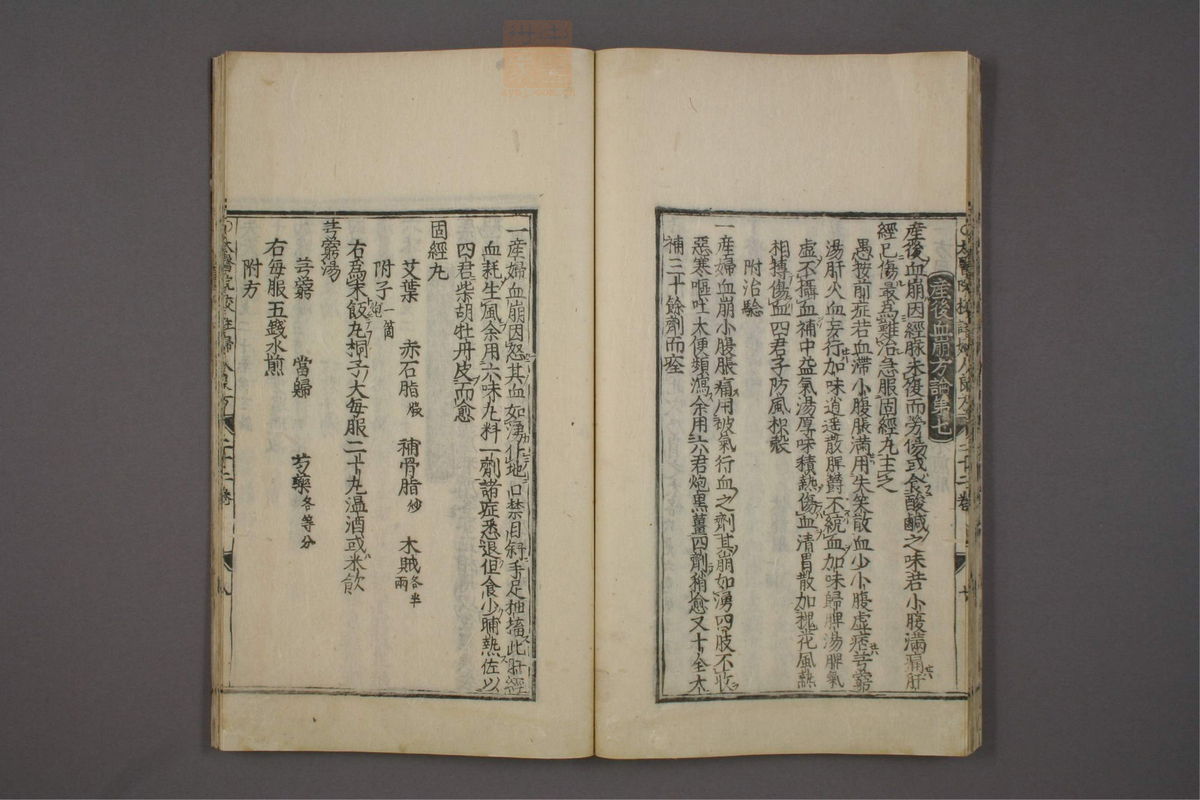 産後血崩方論第七
産後血崩因經脉未復而勞傷或食酸鹹之味若小腹滿痛肝
經已傷最爲難治急服固經丸主之
愚按前症若血滯小腹脹滿用失笑散血少小腹虛痞芎藭
湯肝火血妄行加味逍遙散脾欝不統血加味歸脾湯脾氣
虛不攝血補中益氣湯厚味積熱傷血清胃散加槐花風熱
相搏傷血四君子防風枳殼
附治驗
一産婦血崩小腹脹痛用破氣行血之劑其崩如湧四肢不收
惡寒嘔吐大便頻瀉余用六君炮黒薑四劑稍愈又十全大
補三十餘劑而痊
一産婦血崩因怒其血如湧仆地口禁目斜手足抽搐此肝經
血耗生風余用六味丸料一劑諸症悉退但食少晡熱佐以
四君柴胡牡丹皮而愈
固經丸
艾葉 赤石脂煆 補骨脂炒 木賊各半兩
附子一箇炮
右爲末飯丸桐子大每服二十丸温酒或米飮
芎藭湯
芎藭 當歸 芍藥各等分
右每服五錢水煎
附方